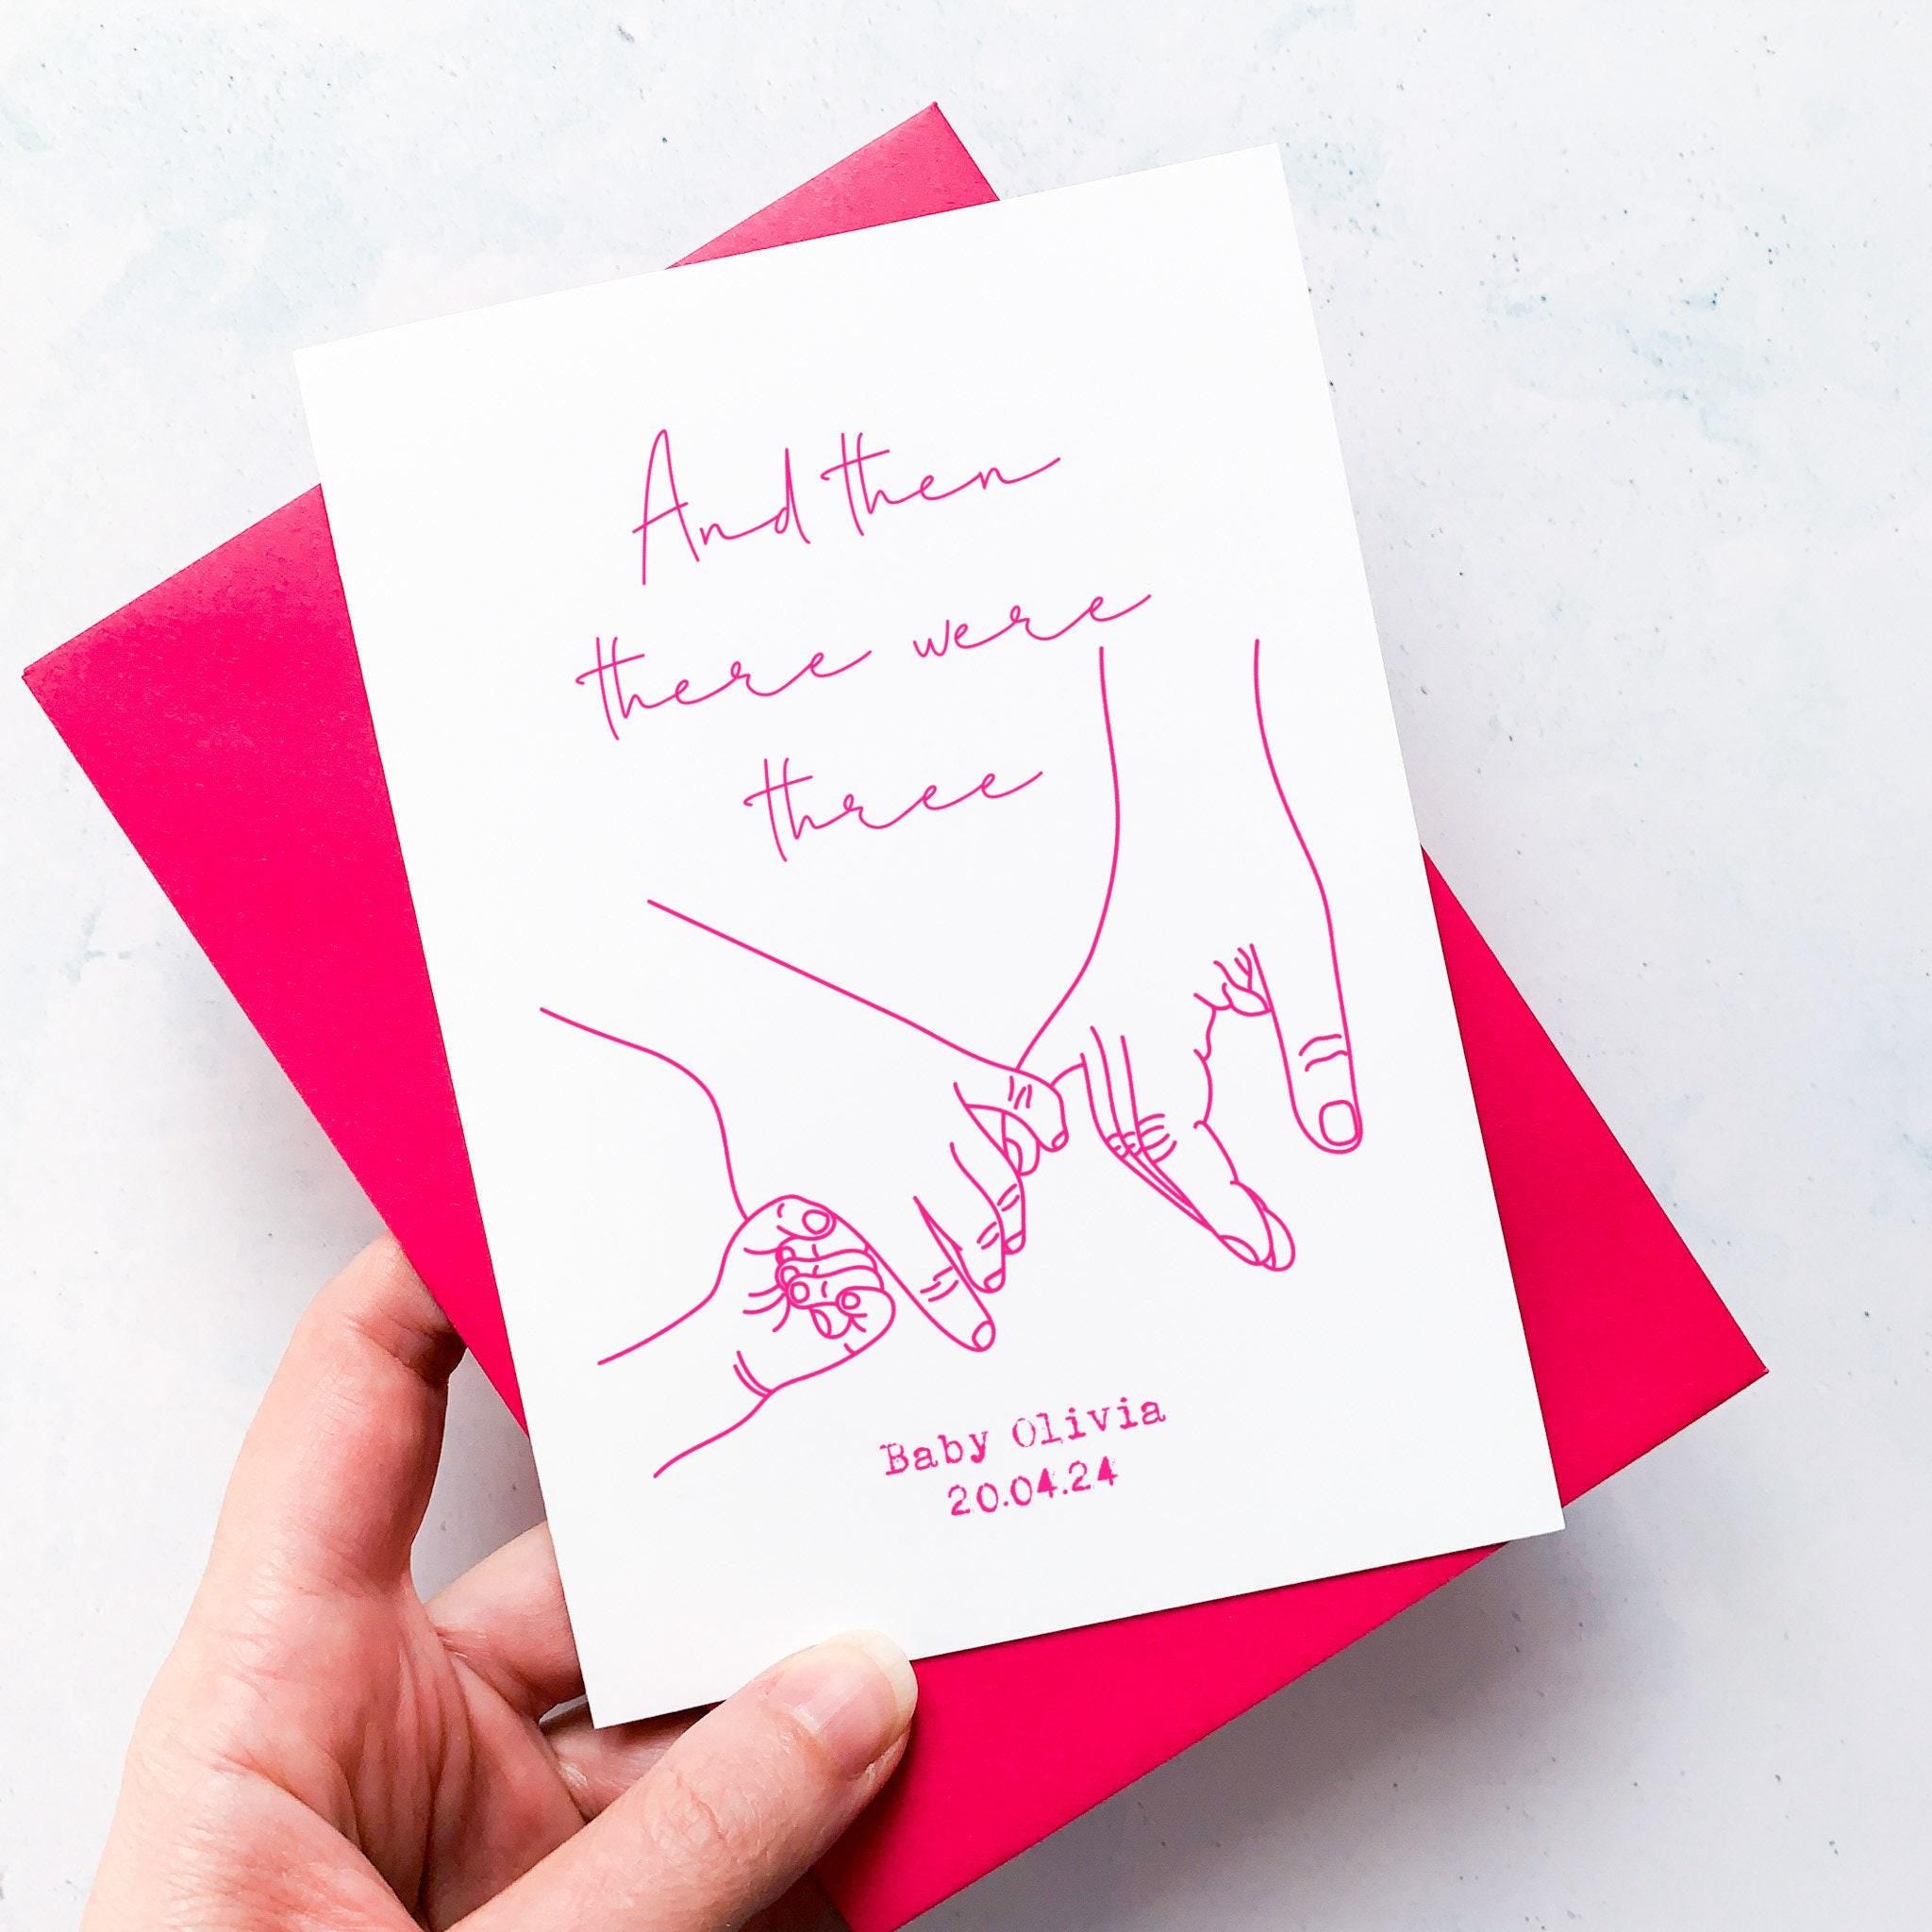 And then
there were
three
Baby Olivia
20.04.24